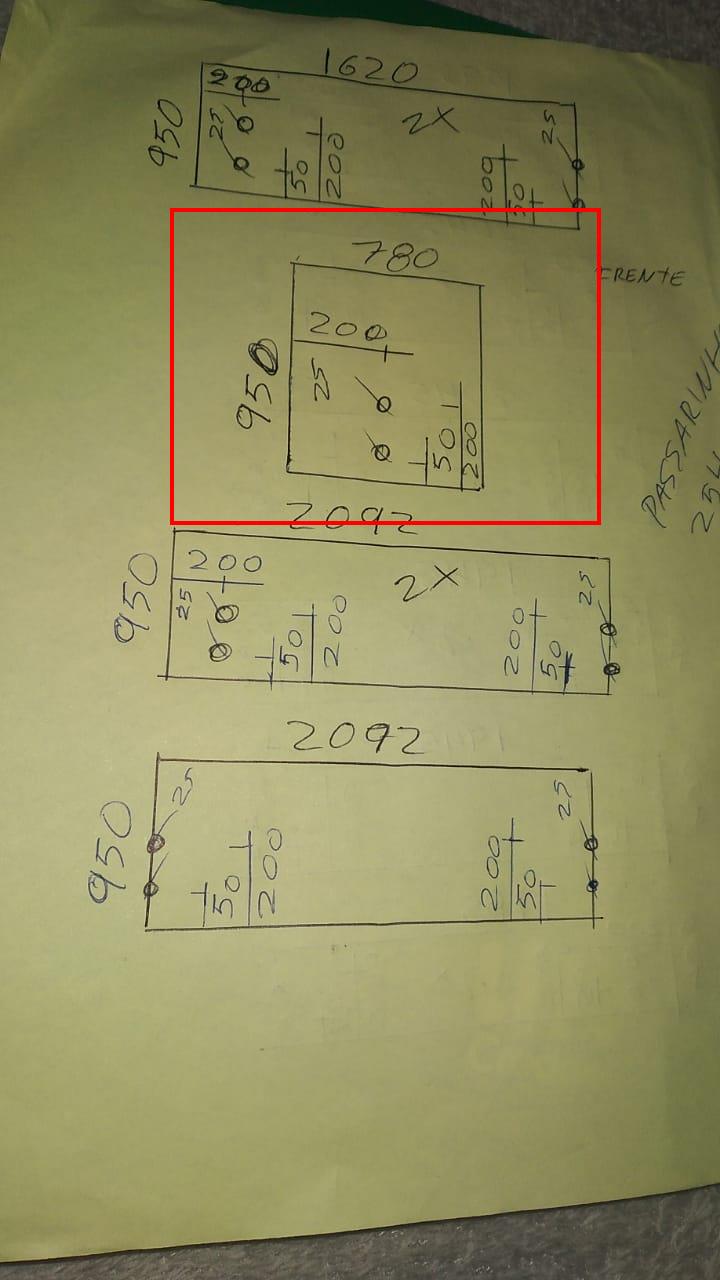 1620
950
200
25
2X
50
200
200
50
25
780
FRENTE
950
200
25
50
200
2092
950
200
25
2X
50
200
200
50
25
2092
950
25
50
200
200
50
25